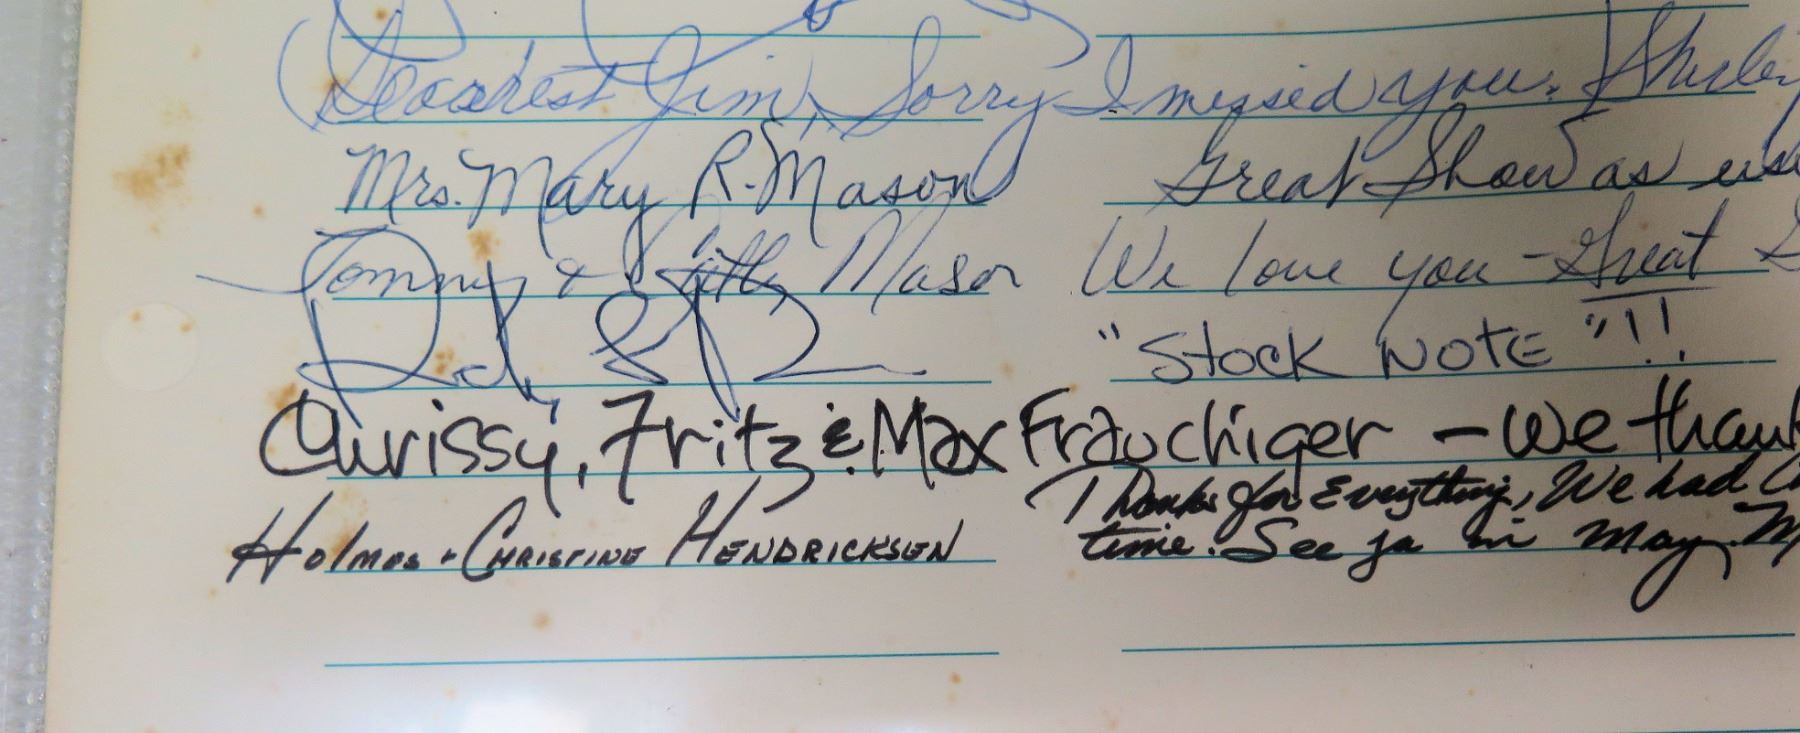 Dearest Jim, Sorry I missed you. Shirley
Mrs. Mary R. Mason Great Show as
Tommy & Mason We love you - Great
"Stock NOTE"!!
Chrissy, Fritz & Max Frauchiger - We thank
Thanks for Everything, We had
Holmes & CHRISTINE HENDRICKSEN time. See ya in May.